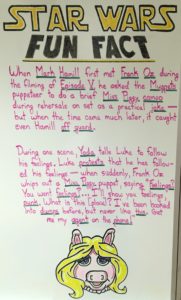 STAR WARS
FUN FACT
When Mark Hamill first met Frank Oz during
the filming of Episode V, he asked the Muppets
puppeteer to do a brief Miss Piggy cameo
during rehearsals on set as a practical joke—
but when the time came much later, it caught
even Hamill off guard.
During one scene Yoda tells Luke to follow
his feelings, Luke protests that he has follow-
ed his feelings— when suddenly, Frank Oz
whips out a Miss Piggy puppet, saying "Feelings?
You want feelings... I'll show you feelings,
punk. What is this [place]? I've been booked
into dumps before, but never like this. Get
me my agent on the phone!